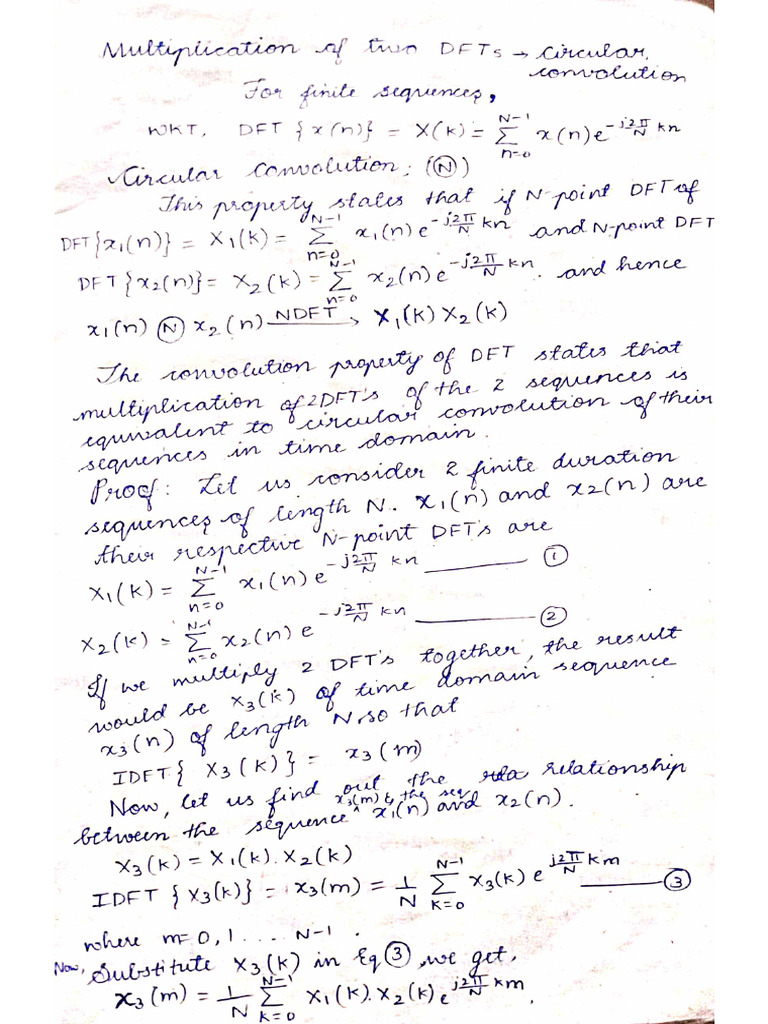 Multiplication of two DFTs → circular
convolution
For finite sequences,
WKT, DFT {x(n)} = X(k) = \sum_{n=0}^{N-1} x(n) e^{-j\frac{2π}{N}kn}
Circular Convolution: (Ⓝ)
This property states that if N-point DFT of
DFT{x₁(n)} = X₁(k) = \sum_{n=0}^{N-1} x₁(n) e^{-j\frac{2π}{N}kn} and N-point DFT
DFT{x₂(n)} = X₂(k) = \sum_{n=0}^{N-1} x₂(n) e^{-j\frac{2π}{N}kn}. and hence
x₁(n) Ⓝ x₂(n) \xrightarrow{NDFT} X₁(k) X₂(k)
The convolution property of DFT states that
multiplication of 2DFT's of the 2 sequences is
equivalent to circular convolution of their
sequences in time domain.
Proof: Let us consider 2 finite duration
sequences of length N. x₁(n) and x₂(n) are
their respective N-point DFT's are
X₁(k) = \sum_{n=0}^{N-1} x₁(n) e^{-j\frac{2π}{N}kn} ——— ①
X₂(k) = \sum_{n=0}^{N-1} x₂(n) e^{-j\frac{2π}{N}kn} ——— ②
If we multiply 2 DFT's together, the result
would be X₃(k) of time domain sequence
x₃(n) of length N, so that
IDFT{ X₃(k)} = x₃(m)
Now, let us find out the rela relationship
between the sequence ^ x₃(m) & the seq x₁(n) and x₂(n).
X₃(k) = X₁(k). X₂(k)
IDFT {X₃(k)} = x₃(m) = \frac{1}{N} \sum_{k=0}^{N-1} X₃(k) e^{j\frac{2π}{N}km} ——— ③
where m=0,1 .... N-1 .
Now, Substitute X₃(k) in Eq ③, we get,
x₃(m) = \frac{1}{N} \sum_{k=0}^{N-1} X₁(k). X₂(k) e^{j\frac{2π}{N}km}.